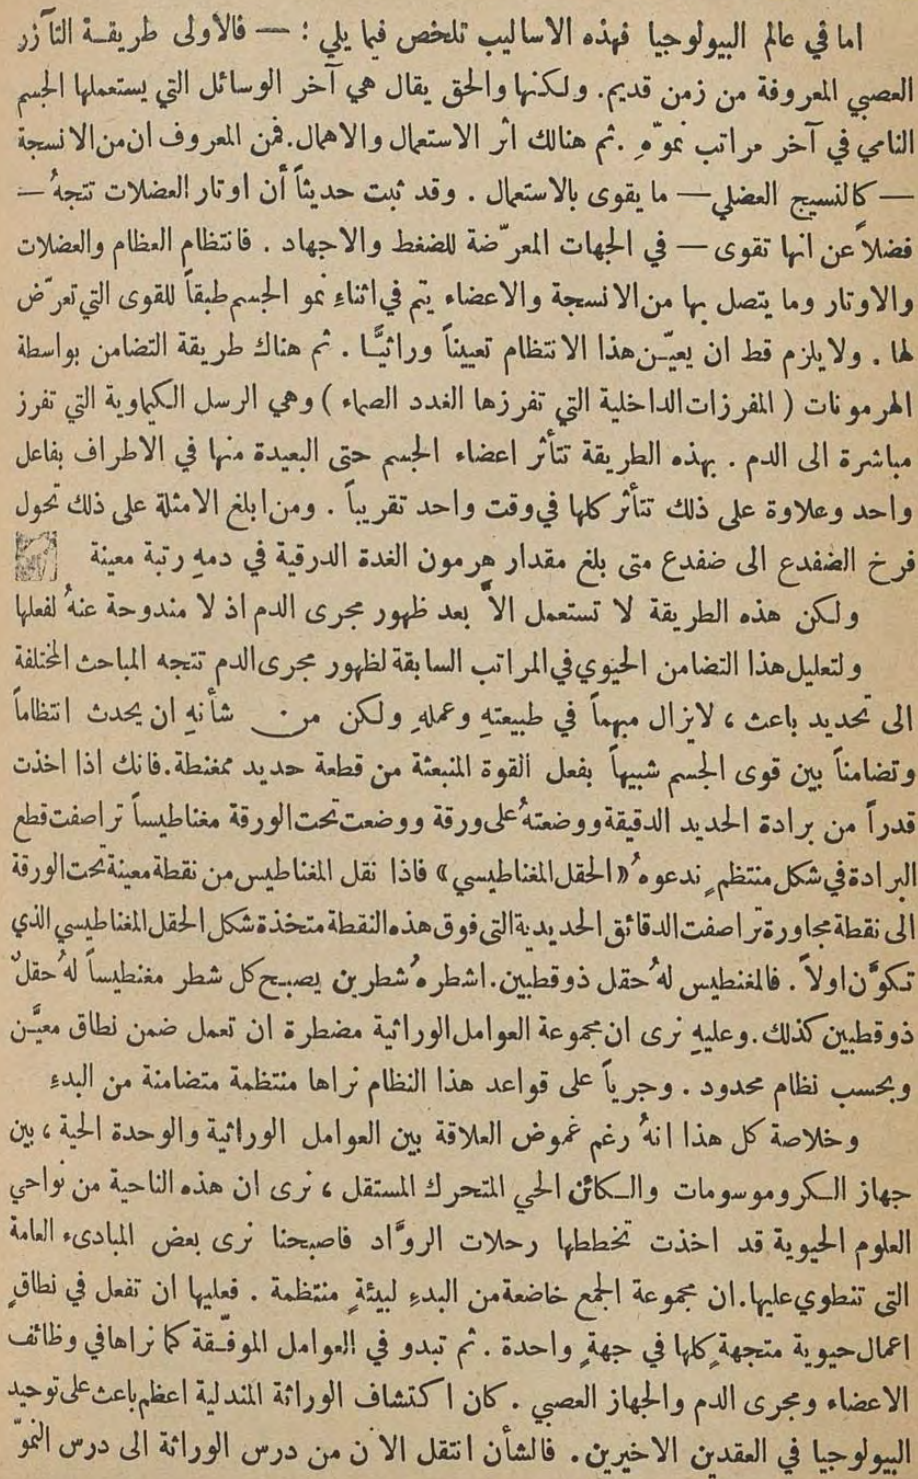 اما في عالم البيولوجيا فهذه الاساليب تلخص فيما يلي : — فالاولى طريقة التآزر
العصبي المعروفة من زمن قديم. ولكنها والحق يقال هي آخر الوسائل التي يستعملها الجسم
النامي في آخر مراتب نموّهِ . ثم هنالك اثر الاستعمال والاهمال. فمن المعروف ان من الانسجة
— كالنسيج العضلي — ما يقوى بالاستعمال . وقد ثبت حديثاً أن اوتار العضلات تتجهُ —
فضلاً عن انها تقوى — في الجهات المعرّضة للضغط والاجهاد . فانتظام العظام والعضلات
والاوتار وما يتصل بها من الانسجة والاعضاء يتم في اثناءِ نمو الجسم طبقاً للقوى التي تعرّض
لها . ولا يلزم قط ان يعيّن هذا الانتظام تعييناً وراثيًّا . ثم هناك طريقة التضامن بواسطة
الهرمونات ( المفرزات الداخلية التي تفرزها الغدد الصماء ) وهي الرسل الكيماوية التي تفرز
مباشرة الى الدم . بهذه الطريقة تتأثر اعضاء الجسم حتى البعيدة منها في الاطراف بفاعل
واحد وعلاوة على ذلك تتأثر كلها في وقت واحد تقريباً . ومن ابلغ الامثلة على ذلك تحول
فرخ الضفدع الى ضفدع متى بلغ مقدار هرمون الغدة الدرقية في دمهِ رتبة معينة
ولكن هذه الطريقة لا تستعمل الاَّ بعد ظهور مجرى الدم اذ لا مندوحة عنهُ لفعلها
ولتعليل هذا التضامن الحيوي في المراتب السابقة لظهور مجرى الدم تتجه المباحث المختلفة
الى تحديد باعث ، لايزال مبهماً في طبيعتهِ وعملهِ ولكن من شأنهِ ان يحدث انتظاماً
وتضامناً بين قوى الجسم شبيهاً بفعل القوة المنبعثة من قطعة حديد ممغنطة . فانك اذا اخذت
قدراً من برادة الحديد الدقيقة ووضعتهُ على ورقة ووضعت تحت الورقة مغناطيساً تراصفت قطع
البرادة في شكل منتظمٍ ندعوهُ «الحقل المغناطيسي» فاذا نقل المغناطيس من نقطة معينة تحت الورقة
الى نقطة مجاورة تراصفت الدقائق الحديدية التى فوق هذه النقطة متخذة شكل الحقل المغناطيسي الذي
تكوَّن اولاً . فالمغنطيس لهُ حقل ذو قطبين . اشطرهُ شطرين يصبح كل شطر مغنطيساً لهُ حقلٌ
ذو قطبين كذلك . وعليهِ نرى ان مجموعة العوامل الوراثية مضطرة ان تعمل ضمن نطاق معيَّن
وبحسب نظام محدود . وجرياً على قواعد هذا النظام نراها منتظمة متضامنة من البدءِ
وخلاصة كل هذا انهُ رغم غموض العلاقة بين العوامل الوراثية والوحدة الحية ، بين
جهاز الكروموسومات والكائن الحي المتحرك المستقل ، نرى ان هذه الناحية من نواحي
العلوم الحيوية قد اخذت تخططها رحلات الروَّاد فاصبحنا نرى بعض المبادىء العامة
التى تنطوي عليها . ان مجموعة الجمع خاضعة من البدءِ لبيئةٍ منتظمة . فعليها ان تفعل في نطاقٍ
اعمال حيوية متجهةٍ كلها في جهةٍ واحدة . ثم تبدو في العوامل الموفّقة كما نراها في وظائف
الاعضاء ومجرى الدم والجهاز العصبي . كان اكتشاف الوراثة المندلية اعظم باعث على توحيد
البيولوجيا في العقدين الاخيرين . فالشأن انتقل الآن من درس الوراثة الى درس النموّ